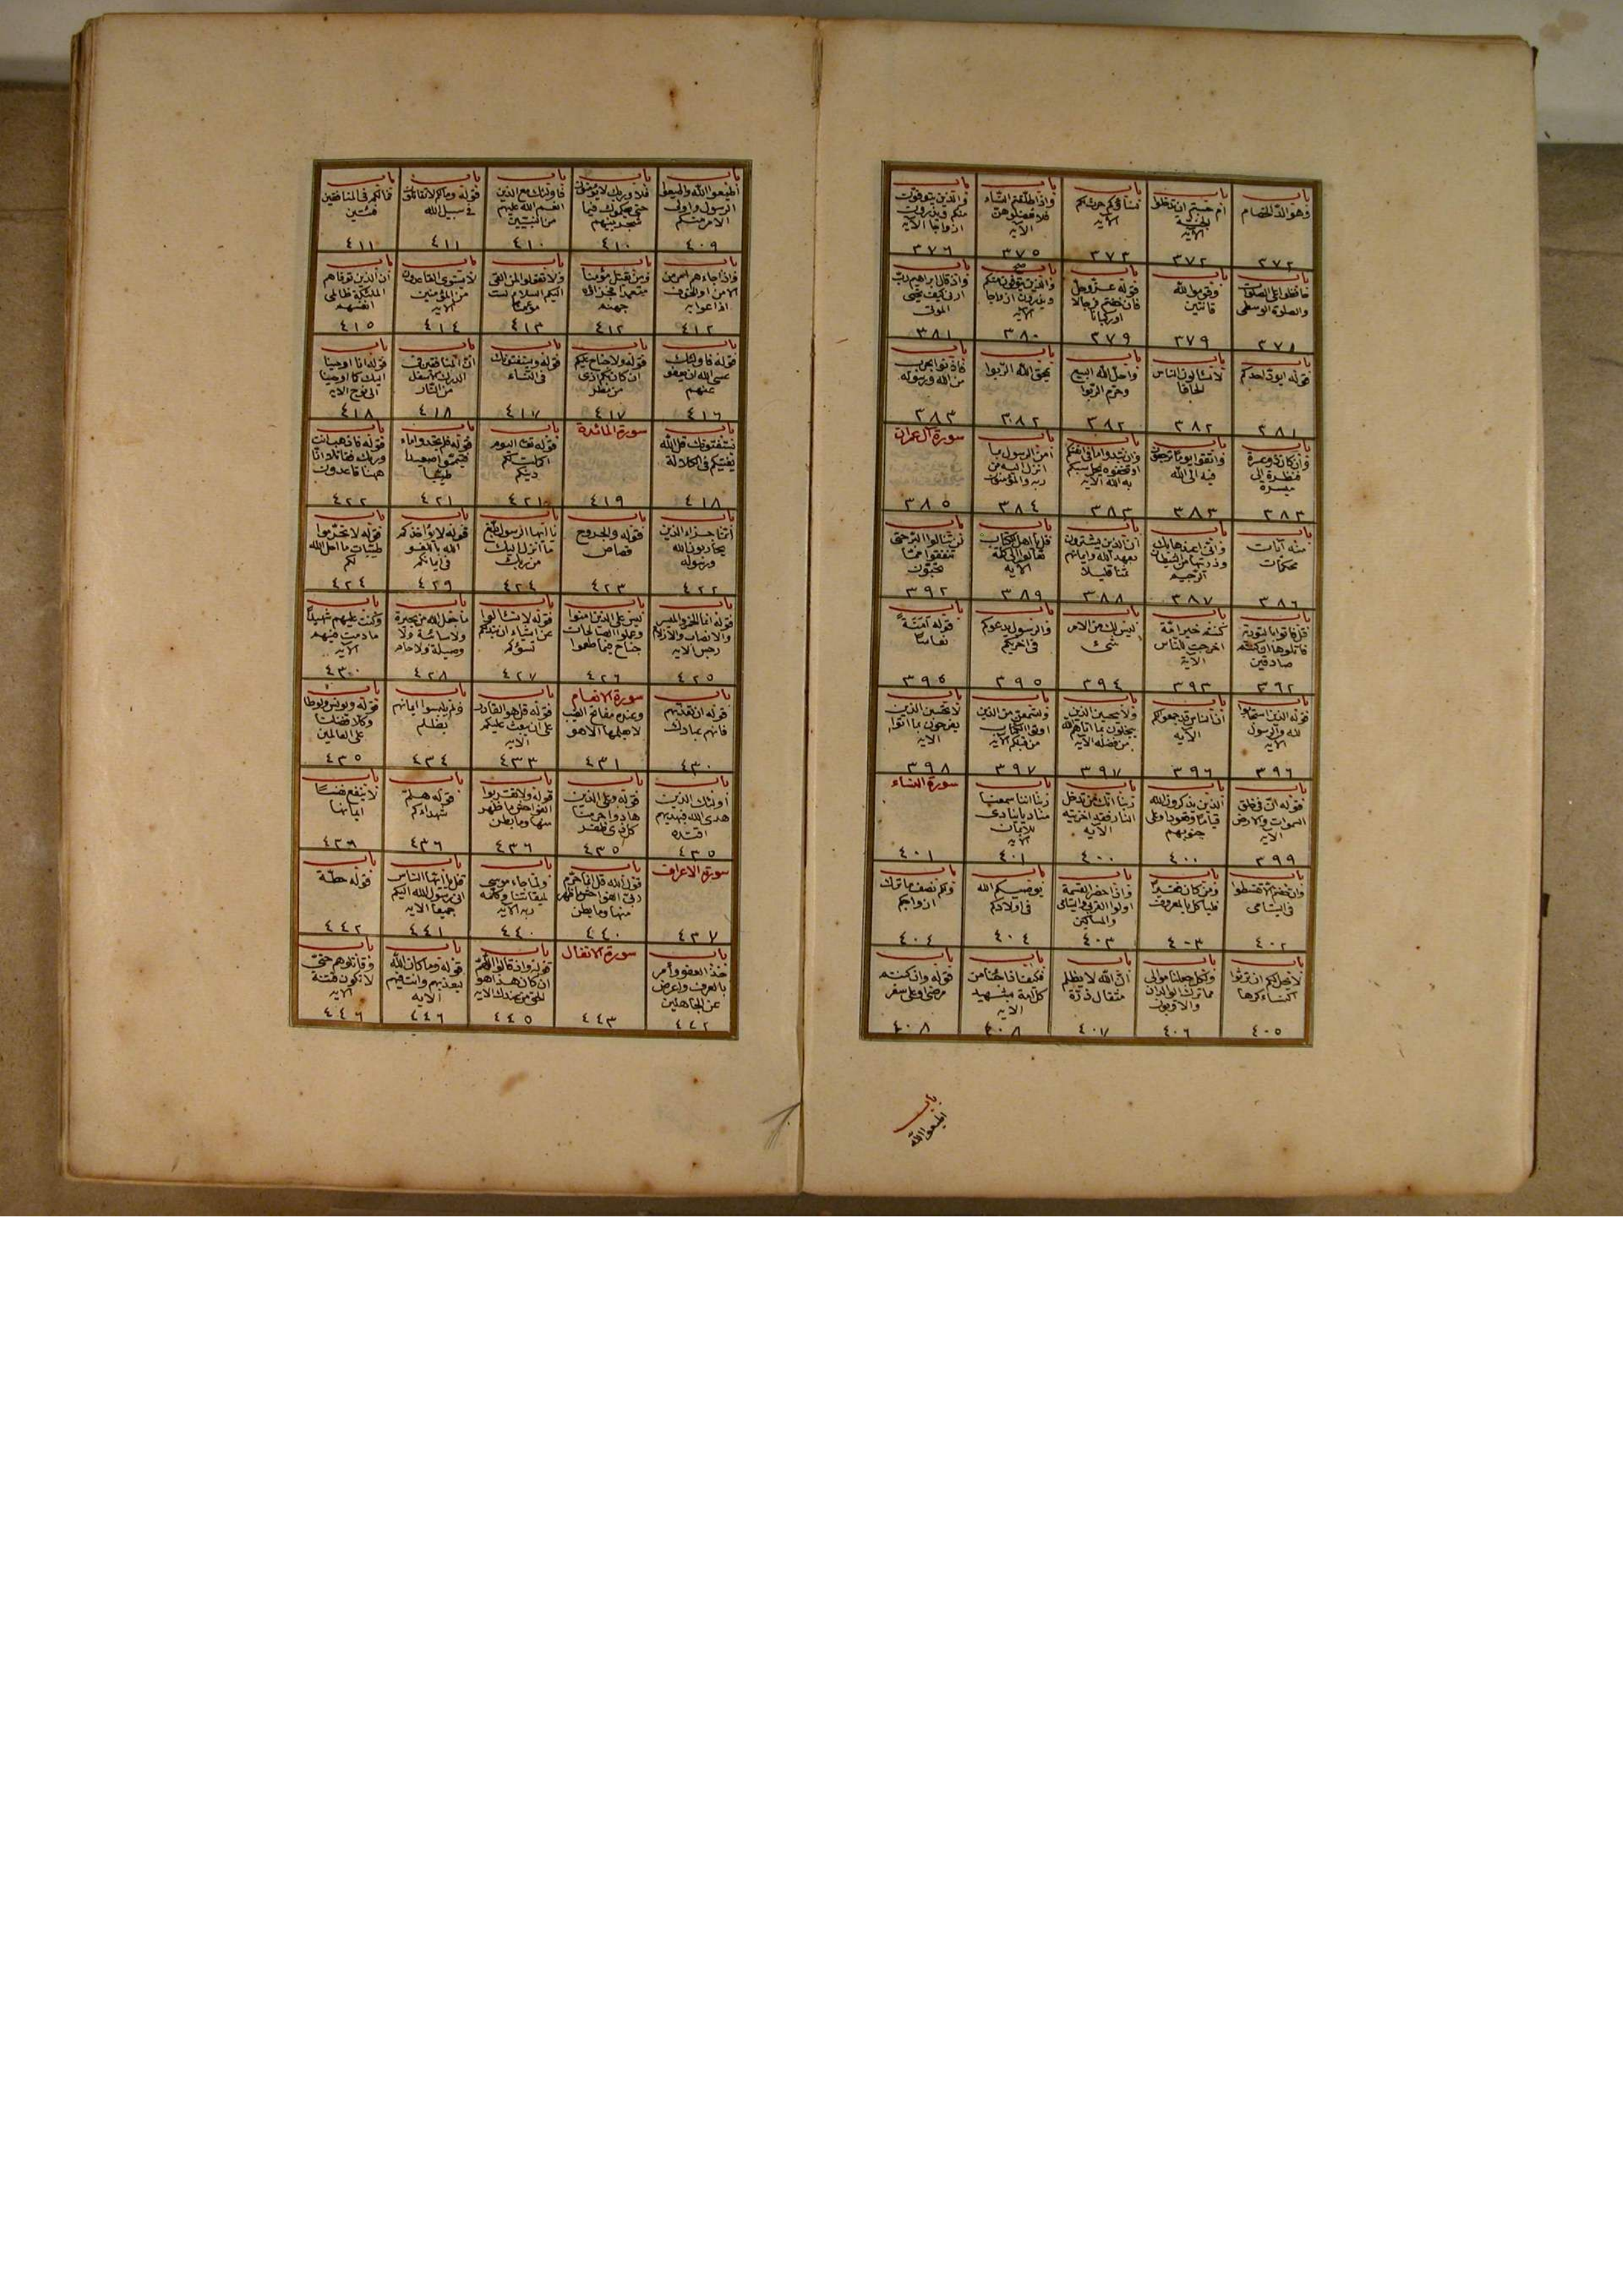 باب
وهو الد الخصام
٣٧٢
باب
ام حسبتم ان تدخلوا
الجنة
الآية
٣٧٢
باب
نساؤكم حرث لكم
الآية
٣٧٣
باب
واذا طلقتم النساء
فلا تعضلوهن
الآية
٣٧٥
باب
والذين يتوفون
منكم ويذرون
ازواجا الآية
٣٧٦
باب
حافظوا على الصلوات
والصلوة الوسطى
٣٧٨
باب
وقوموا لله
قانتين
٣٧٩
باب
قوله عز وجل
فان خفتم فرجالا
او ركبانا
٣٧٩
والذين يتوفون منكم
ويذرون ازواجا
الآية
٣٨٠
باب
واذ قال ابراهيم رب
ارنى كيف تحيى
الموتى
٣٨١
باب
قوله ايود احدكم
٣٨١
باب
لا يسألون الناس
الحافا
٣٨٢
باب
واحل الله البيع
وحرم الربوا
٣٨٢
باب
يمحق الله الربوا
٣٨٢
باب
فاذنوا بحرب
من الله ورسوله
٣٨٣
باب
وان كان ذو عسرة
فنظرة الى
ميسرة
٣٨٣
باب
واتقوا يوما ترجعون
فيه الى الله
٣٨٣
باب
وان تبدوا ما فى انفسكم
او تخفوه يحاسبكم
به الله الآية
٣٨٣
باب
آمن الرسول بما
انزل اليه من
ربه والمؤمنون
٣٨٤
سورة آل عمران
٣٨٥
باب
منه آيات
محكمات
٣٨٦
باب
وانى اعيذها بك
وذريتها من الشيطان
الرجيم
٣٨٧
باب
ان الذين يشترون
بعهد الله وايمانهم
ثمنا قليلا
٣٨٨
باب
قل يا اهل الكتاب
تعالوا الى كلمة
الآية
٣٨٩
باب
لن تنالوا البر حتى
تنفقوا مما
تحبون
٣٩٢
باب
قل فأتوا بالتورية
فاتلوها ان كنتم
صادقين
٣٩٢
باب
كنتم خير امة
اخرجت للناس
الآية
٣٩٣
باب
ليس لك من الامر
شئ
٣٩٤
باب
والرسول يدعوكم
فى اخريكم
٣٩٥
باب
قوله امنة
نعاسا
٣٩٥
باب
قوله الذين استجابوا
لله والرسول
الآية
٣٩٦
باب
ان الناس قد جمعوا لكم
الآية
٣٩٦
باب
ولا يحسبن الذين
يبخلون بما آتاهم الله
من فضله الآية
٣٩٧
باب
ولتسمعن من الذين
اوتوا الكتاب
من قبلكم الآية
٣٩٧
باب
لا تحسبن الذين
يفرحون بما اتوا
الآية
٣٩٨
باب
قوله ان فى خلق
السموات والارض
الآية
٣٩٩
باب
الذين يذكرون الله
قياما وقعودا وعلى
جنوبهم
٤٠٠
باب
ربنا انك من تدخل
النار فقد اخزيته
الآية
٤٠٠
باب
ربنا اننا سمعنا
مناديا ينادى
للايمان
الآية
٤٠١
سورة النساء
٤٠١
باب
وان خفتم الا تقسطوا
فى اليتامى
٤٠٢
باب
ومن كان فقيرا
فليأكل بالمعروف
٤٠٣
باب
واذا حضر القسمة
اولوا القربى واليتامى
والمساكين
٤٠٣
باب
يوصيكم الله
فى اولادكم
٤٠٤
باب
ولكم نصف ما ترك
ازواجكم
٤٠٤
باب
لا يحل لكم ان ترثوا
النساء كرها
٤٠٥
باب
ولكل جعلنا موالى
مما ترك الوالدان
والاقربون
٤٠٦
باب
ان الله لا يظلم
مثقال ذرة
٤٠٧
باب
فكيف اذا جئنا من
كل امة بشهيد
الآية
٤٠٨
باب
قوله وان كنتم
مرضى او على سفر
٤٠٨
باب
اطيعوا الله
باب
اطيعوا الله واطيعوا
الرسول واولى
الامر منكم
٤٠٩
باب
فلا وربك لا يؤمنون
حتى يحكموك فيما
شجر بينهم
٤١٠
باب
فاولئك مع الذين
انعم الله عليهم
من النبيين
٤١٠
باب
قوله وما لكم لا تقاتلون
فى سبيل الله
٤١١
باب
فما لكم فى المنافقين
فئتين
٤١١
باب
واذا جاءهم امر من
الامن او الخوف
اذاعوا به
٤١٢
باب
ومن يقتل مؤمنا
متعمدا فجزاؤه
جهنم
٤١٢
باب
ولا تقولوا لمن القى
اليكم السلام لست
مؤمنا
٤١٣
باب
لا يستوى القاعدون
من المؤمنين
الآية
٤١٤
باب
ان الذين توفاهم
الملئكة ظالمى
انفسهم
٤١٥
باب
قوله فاولئك
عسى الله ان يعفو
عنهم
٤١٦
باب
قوله ولا جناح عليكم
ان كان بكم اذى
من مطر
٤١٧
باب
قوله ويستفتونك
فى النساء
٤١٧
باب
ان المنافقين فى
الدرك الاسفل
من النار
٤١٨
باب
قوله انا اوحينا
اليك كما اوحينا
الى نوح الآية
٤١٨
باب
يستفتونك قل الله
يفتيكم فى الكلالة
٤١٨
سورة المائدة
٤١٩
باب
قوله اليوم
اكملت لكم
دينكم
٤٢١
باب
قوله فلم تجدوا ماء
فتيمموا صعيدا
طيبا
٤٢١
باب
قوله فاذهب انت
وربك فقاتلا انا
ههنا قاعدون
٤٢٢
باب
انما جزاء الذين
يحاربون الله
ورسوله
٤٢٢
باب
قوله والجروح
قصاص
٤٢٣
باب
يا ايها الرسول بلغ
ما انزل اليك
من ربك
٤٢٤
باب
قوله لا يؤاخذكم
الله باللغو
فى ايمانكم
٤٢٩
باب
قوله لا تحرموا
طيبات ما احل الله
لكم
٤٢٤
باب
قوله انما الخمر والميسر
والانصاب والازلام
رجس الآية
٤٢٥
باب
ليس على الذين امنوا
وعملوا الصالحات
جناح فيما طعموا
٤٢٦
باب
قوله لا تسألوا
عن اشياء ان تبد لكم
تسؤكم
٤٢٧
باب
ما جعل الله من بحيرة
ولا سائبة ولا
وصيلة ولا حام
٤٢٨
باب
وكنت عليهم شهيدا
ما دمت فيهم
الآية
٤٣٠
باب
قوله ان تعذبهم
فانهم عبادك
٤٣٠
سورة الانعام
وعنده مفاتح الغيب
لا يعلمها الا هو
٤٣١
باب
قوله قل هو القادر
على ان يبعث عليكم
الآية
٤٣٣
باب
ولم يلبسوا ايمانهم
بظلم
٤٣٤
باب
قوله ويونس ولوطا
وكلا فضلنا
على العالمين
٤٣٥
باب
اولئك الذين
هدى الله فبهديهم
اقتده
٤٣٥
باب
قوله وعلى الذين
هادوا حرمنا
كل ذى ظفر
٤٣٥
باب
قوله ولا تقربوا
الفواحش ما ظهر
منها وما بطن
٤٣٦
باب
قوله هلم
شهداءكم
٤٣٦
باب
لا ينفع نفسا
ايمانها
٤٣٦
سورة الاعراف
٤٣٧
باب
قول الله قل انما حرم
ربى الفواحش ما ظهر
منها وما بطن
٤٤٠
باب
ولما جاء موسى
لميقاتنا وكلمه
ربه الآية
٤٤٠
باب
قل يا ايها الناس
انى رسول الله اليكم
جميعا الآية
٤٤١
باب
قوله حطة
٤٤٢
باب
خذ العفو وأمر
بالعرف واعرض
عن الجاهلين
٤٤٢
سورة الانفال
٤٤٣
باب
قوله واذ قالوا اللهم
ان كان هذا هو
الحق من عندك الآية
٤٤٥
باب
قوله وما كان الله
ليعذبهم وانت فيهم
الآية
٤٤٦
باب
وقاتلوهم حتى
لا تكون فتنة
الآية
٤٤٦